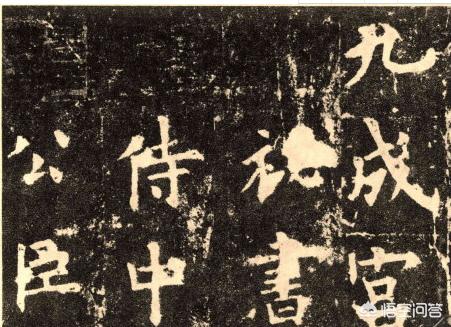 九成宮
祕書
侍中
公臣
悟空问答